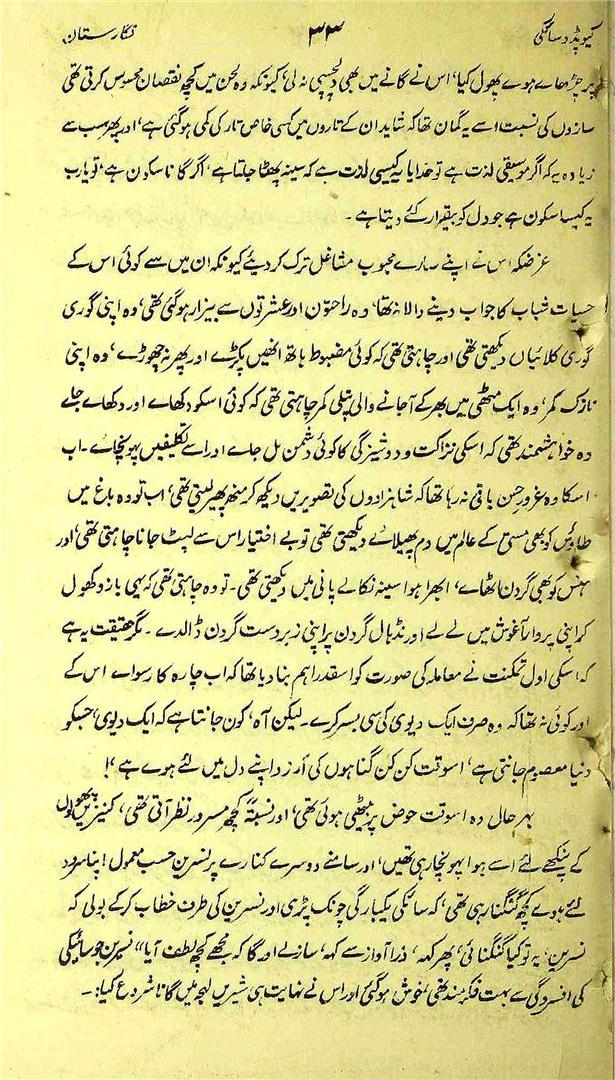 کیوپڈ و سائکی ۳۳ نگارستان
پر چڑھاے ہوے پھول کیا، اس نے گانے میں بھی دلچسپی نہ لی، کیونکہ وہ لحن میں کچھ نقصان محسوس کرتی تھی
سازوں کی نسبت اسے یہ گمان تھا کہ شاید ان کے تاروں میں کسی خاص تار کی کمی ہوگئی ہے، اور پھر سب سے
زیادہ یہ کہ اگر موسیقی لذت ہے تو خدایا یہ کیسی لذت ہے کہ سینہ پھٹا جلتا ہے، اگر گانا سکون ہے، تو یارب
یہ کیسا سکون ہے جو دل کو بیقرار کئے دیتا ہے ۔
غرضکہ اس نے اپنے سارے محبوب مشاغل ترک کردیئے کیونکہ ان میں سے کوئی اس کے
حسیات شباب کا جواب دینے والا نہ تھا، وہ راحتوں اور عشرتوں سے بیزار ہوگئی تھی، وہ اپنی گوری
گوری کلائیاں دیکھتی تھی اور چاہتی تھی کہ کوئی مضبوط ہاتھ انھیں پکڑے اور پھر نہ چھوڑے، وہ اپنی
نازک کمر، وہ ایک مٹھی میں بھر کے آجانے والی پتلی کمر چاہتی تھی کہ کوئی اسکو دکھاے اور دکھاے جاے
وہ خواہشمند تھی کہ اسکی نزاکت و دوشیزگی کا کوئی دشمن مل جاے اور اسے تکلیفیں پہونچاے ۔ اب
اسکا وہ غرور حسن باقی نہ رہا تھا کہ شاہزادوں کی تصویریں دیکھ کر منھ پھیر لیتی تھی، اب تو وہ باغ میں
طاؤس کو بھی مستی کے عالم میں دم پھیلاے دیکھتی تھی تو بے اختیار اس سے لپٹ جانا چاہتی تھی، اور
ہنس کو بھی گردن اٹھاے، ابھرا ہوا سینہ نکالے پانی میں دیکھتی تھی ۔ تو وہ چاہتی تھی کہ یہی بازو کھول
کر اپنی پروار آغوش میں لے لے اور نڈہال گردن پر اپنی زبردست گردن ڈالدے ۔ مگر حقیقت یہ ہے
کہ اسکی اول تمکنت نے معاملہ کی صورت کو اسقدر اہم بنا دیا تھا کہ اب چارہ کار سواے اس کے
اور کوئی نہ تھا کہ وہ صرف ایک دیوی کی سی بسر کرے ۔ لیکن آہ، کون جانتا ہے کہ ایک دیوی، جسکو
دنیا معصوم جانتی ہے، اسوقت کن کن گناہوں کی آرزو اپنے دل میں لئے ہوے ہے ،!
بہر حال وہ اسوقت حوض پر بیٹھی ہوئی تھی، اور نسبتہً کچھ مسرور نظر آتی تھی، کنیزیں پھولوں
کے پنکھے لئے اسے ہوا پہونچا رہی تھیں، اور سامنے دوسرے کنارے پر نسرین حسب معمول اپنا سرود
لئے ہوے کچھ گنگنا رہی تھی، کہ سائکی یکبارگی چونک پڑی اور نسرین کی طرف خطاب کرکے بولی کہ
نسرین، یہ تو کیا گنگنائی، پھر کہہ، ذرا آواز سے کہہ، ساز لے اور گا کہ مجھے کچھ لطف آیا" نسرین جو سائیکی
کی افسردگی سے بہت فکرمند تھی، خوش ہوگئی اور اس نے نہایت ہی شیریں لہجہ میں گانا شروع کیا: ۔